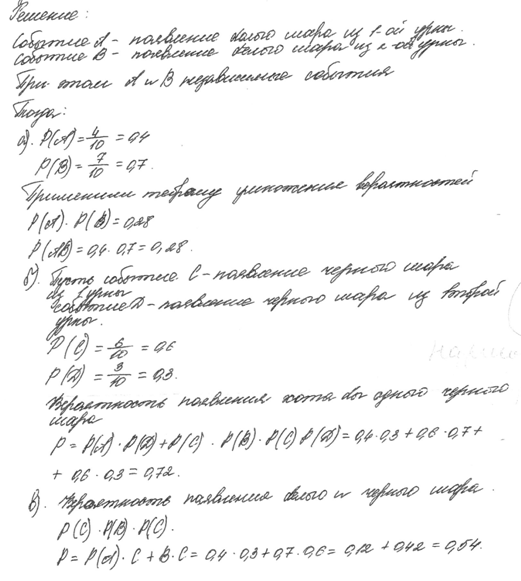 Решение:
Событие A - появление белого шара из 1-ой урны.
Событие B - появление белого шара из 2-ой урны.
При этом A и B независимые события
Тогда:
а). P(A) = 4/10 = 0,4
P(B) = 7/10 = 0,7.
Применим теорему умножения вероятностей
P(A) · P(B) = 0,28
P(AB) = 0,4 · 0,7 = 0,28.
б). Пусть событие C - появление черного шара
из 1 урны
событие D - появление черного шара из второй
урны.
P(C) = 6/10 = 0,6
P(D) = 3/10 = 0,3.
Вероятность появления хотя бы одного черного
шара
P = P(A) · P(D) + P(C) · P(B) · P(C) P(D) = 0,4 · 0,3 + 0,6 · 0,7 +
+ 0,6 · 0,3 = 0,72.
в). Вероятность появления белого и черного шара.
P(C) · P(B) · P(C).
P = P(A) · C + B · C = 0,4 · 0,3 + 0,7 · 0,6 = 0,12 + 0,42 = 0,54.